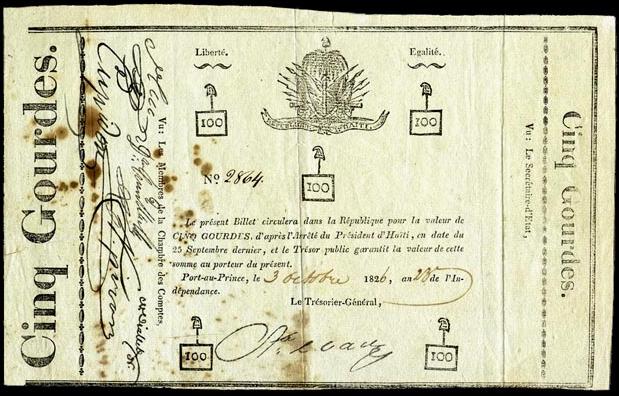 Cinq Gourdes.
Vu: Les Membres de la Chambre des Comptes,
Liberté.
Egalité.
100
100
100
No. 2864.
Le présent Billet circulera dans la République pour la valeur de
CINQ GOURDES, d'après l'Arrêté du Président d'Haïti, en date du
25 Septembre dernier, et le Trésor public garantit la valeur de cette
somme au porteur du présent.
Port-au-Prince, le 3 octobre 1826, an 23e de l'In-
dépendance.
Le Trésorier-Général,
100
100
Vu: Le Secrétaire-d'Etat,
Cinq Gourdes.